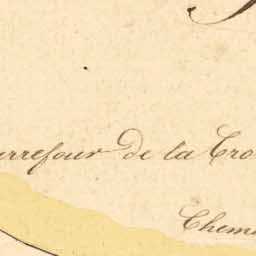 urrefour de la Cro
Chem